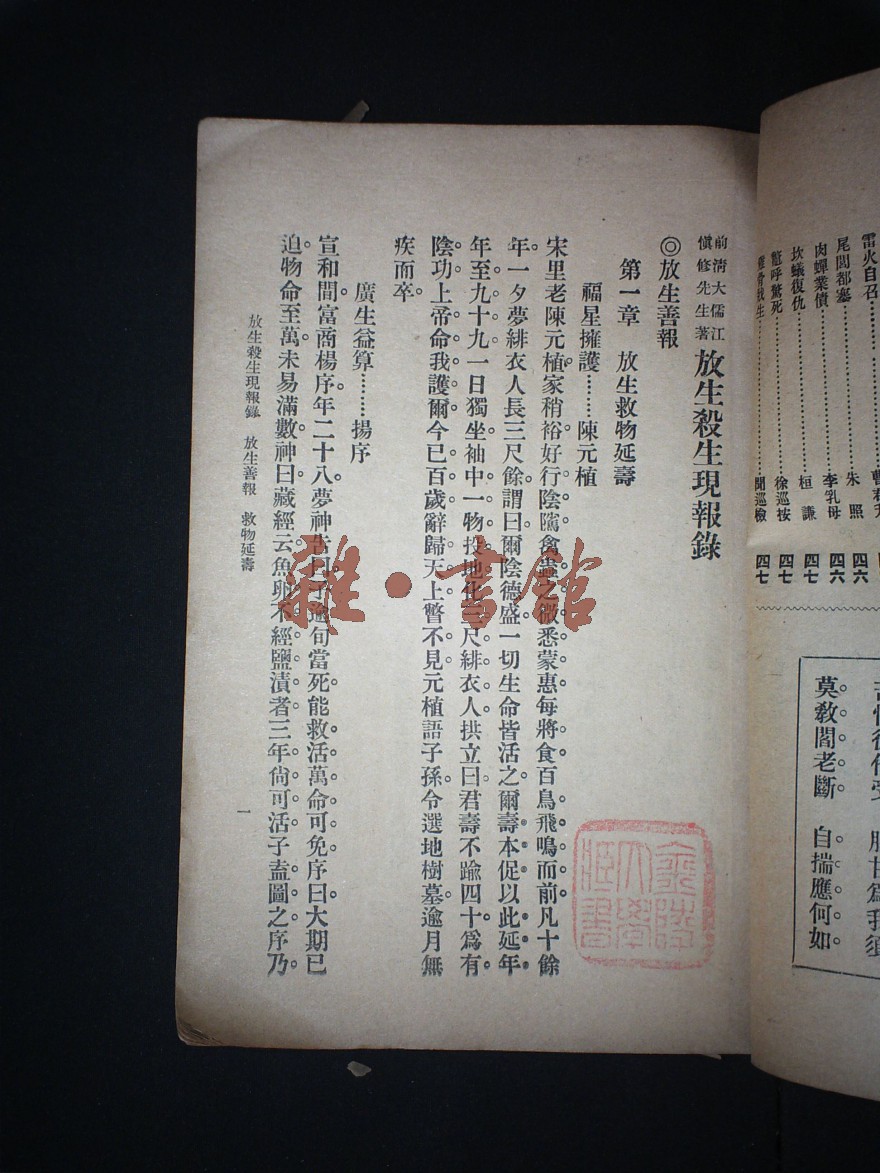 雷火自召
尾閭都塞………朱照 四六
肉蟬業債………李乳母 四六
坎蟻復仇………桓謙 四七
鼈呼驚死………徐巡按 四七
四七
莫敎閻老斷 自揣應何如
前清大儒江
愼修先生著
放生殺生現報錄
◎放生善報
第一章 放生救物延壽
福星擁護………陳元植
宋里老陳元植家稍裕好行陰隲禽蟲之微悉蒙惠每將食百鳥飛鳴而前凡十餘
年一夕夢緋衣人長三尺餘謂曰爾陰德盛一切生命皆活之爾壽本促以此延年
年至九十九一日獨坐袖中一物投地化三尺緋衣人拱立曰君壽不踰四十爲有
陰功上帝命我護爾今已百歲辭歸天上瞥不見元植語子孫令選地樹墓逾月無
疾而卒。
廣生益算………揚序
宣和間富商楊序年二十八夢神告曰子逾旬當死能救活萬命可免序曰大期已
迫物命至萬未易滿數神曰藏經云魚卵不經鹽漬者三年尙可活子盍圖之序乃
放生殺生現報錄 放生善報 救物延壽
一
雜·書館